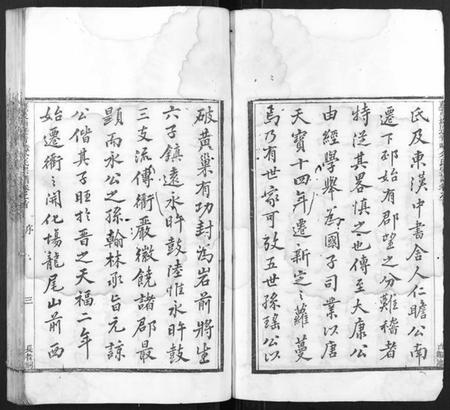 氏及東漢中書舍人仁瞻公南
遷下邳始有郡望之分難稽者
特從其畧慎之也傳至大康公
由經學舉為國子司業以唐
天寶十四年遷新定之蘿蔓
焉乃有世家可攷五世孫瑤公以
破黃巢有功封為岩前將生
六子鎮遠永昨鼓陸惟永昨鼓
三支流傳衢嚴徽饒諸郡最
顯而永公之孫翰林承旨元諒
公偕其子暄於晉之天福二年
始遷衢之開化塲龍尾山前西
序
三